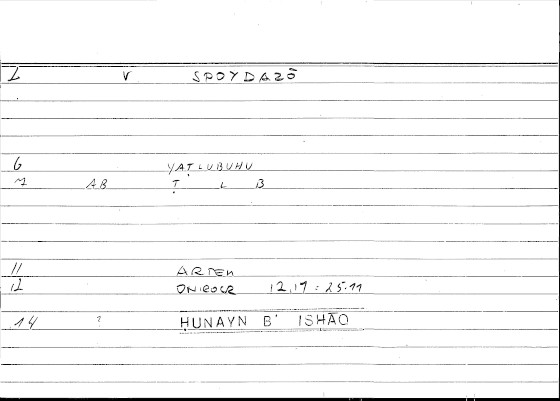 1 V SPOYDAZŌ
6 YAṬLUBUHU
7 AB Ṭ L B
11 ARTEM
12 ONIROCR 12,17 : 25.11
14 ? ḤUNAYN B' ISḤĀQ